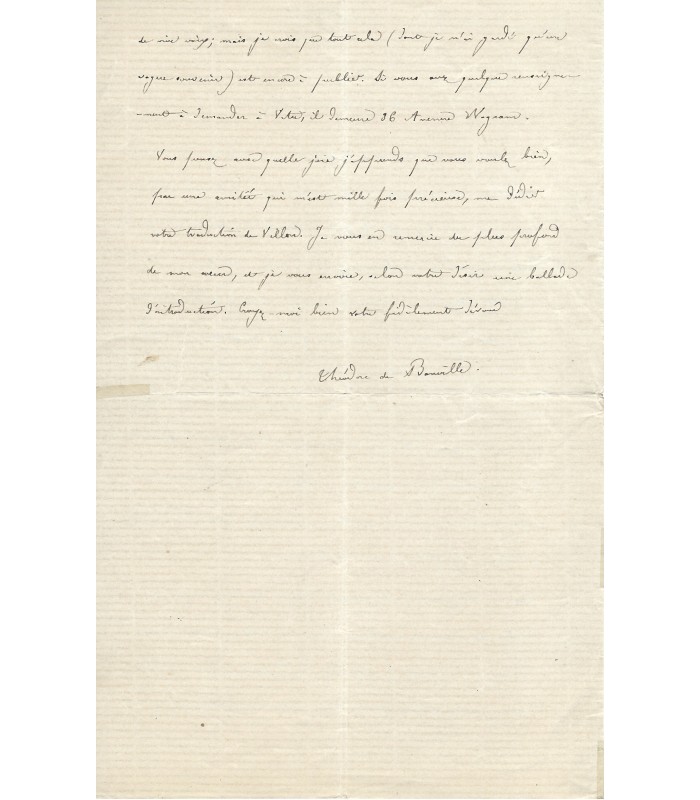 mais je crois que tout cela (dont je n'ai gardé qu'un
vague souvenir) est encore à publier. Si vous avez quelque renseigne-
-ment à demander à Vitu, il demeure 36 Avenue Wagram.
Vous pensez avec quelle joie j'apprends que vous voulez bien,
par une amitié qui m'est mille fois précieuse, me dédier
votre traduction de Villon. Je vous en remercie du plus profond
de mon cœur, et je vous envoie, selon votre désir une ballade
d'introduction. Croyez-moi bien votre fidèlement dévoué
Théodore de Banville.